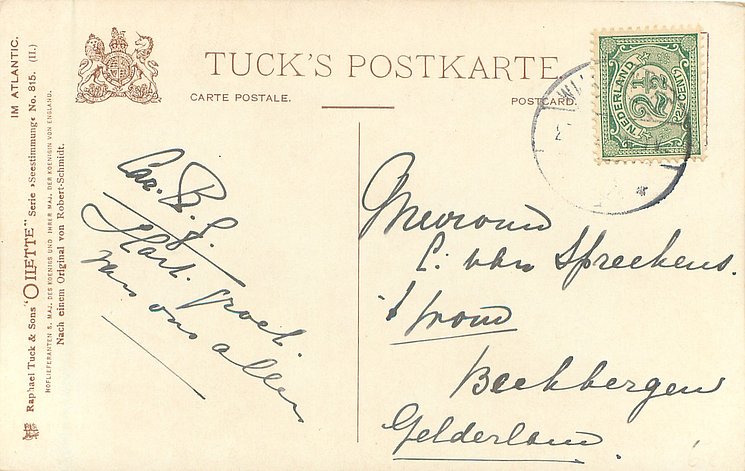 TUCK'S POSTKARTE
CARTE POSTALE.
POSTCARD.
IM ATLANTIC.
Raphael Tuck & Sons "OILETTE" Serie »Seestimmung« No. 815. (II.)
HOFLIEFERANTEN S. MAJ. DES KOENIGS UND IHRER MAJ. DER KOENIGIN VON ENGLAND.
Nach einem Original von Robert-Schmidt.
NEDERLAND
2½
2½ CENT
Hart. groet.
van ons allen
Mevrouw
C. van Spreekens.
't
Beekbergen
Gelderland.